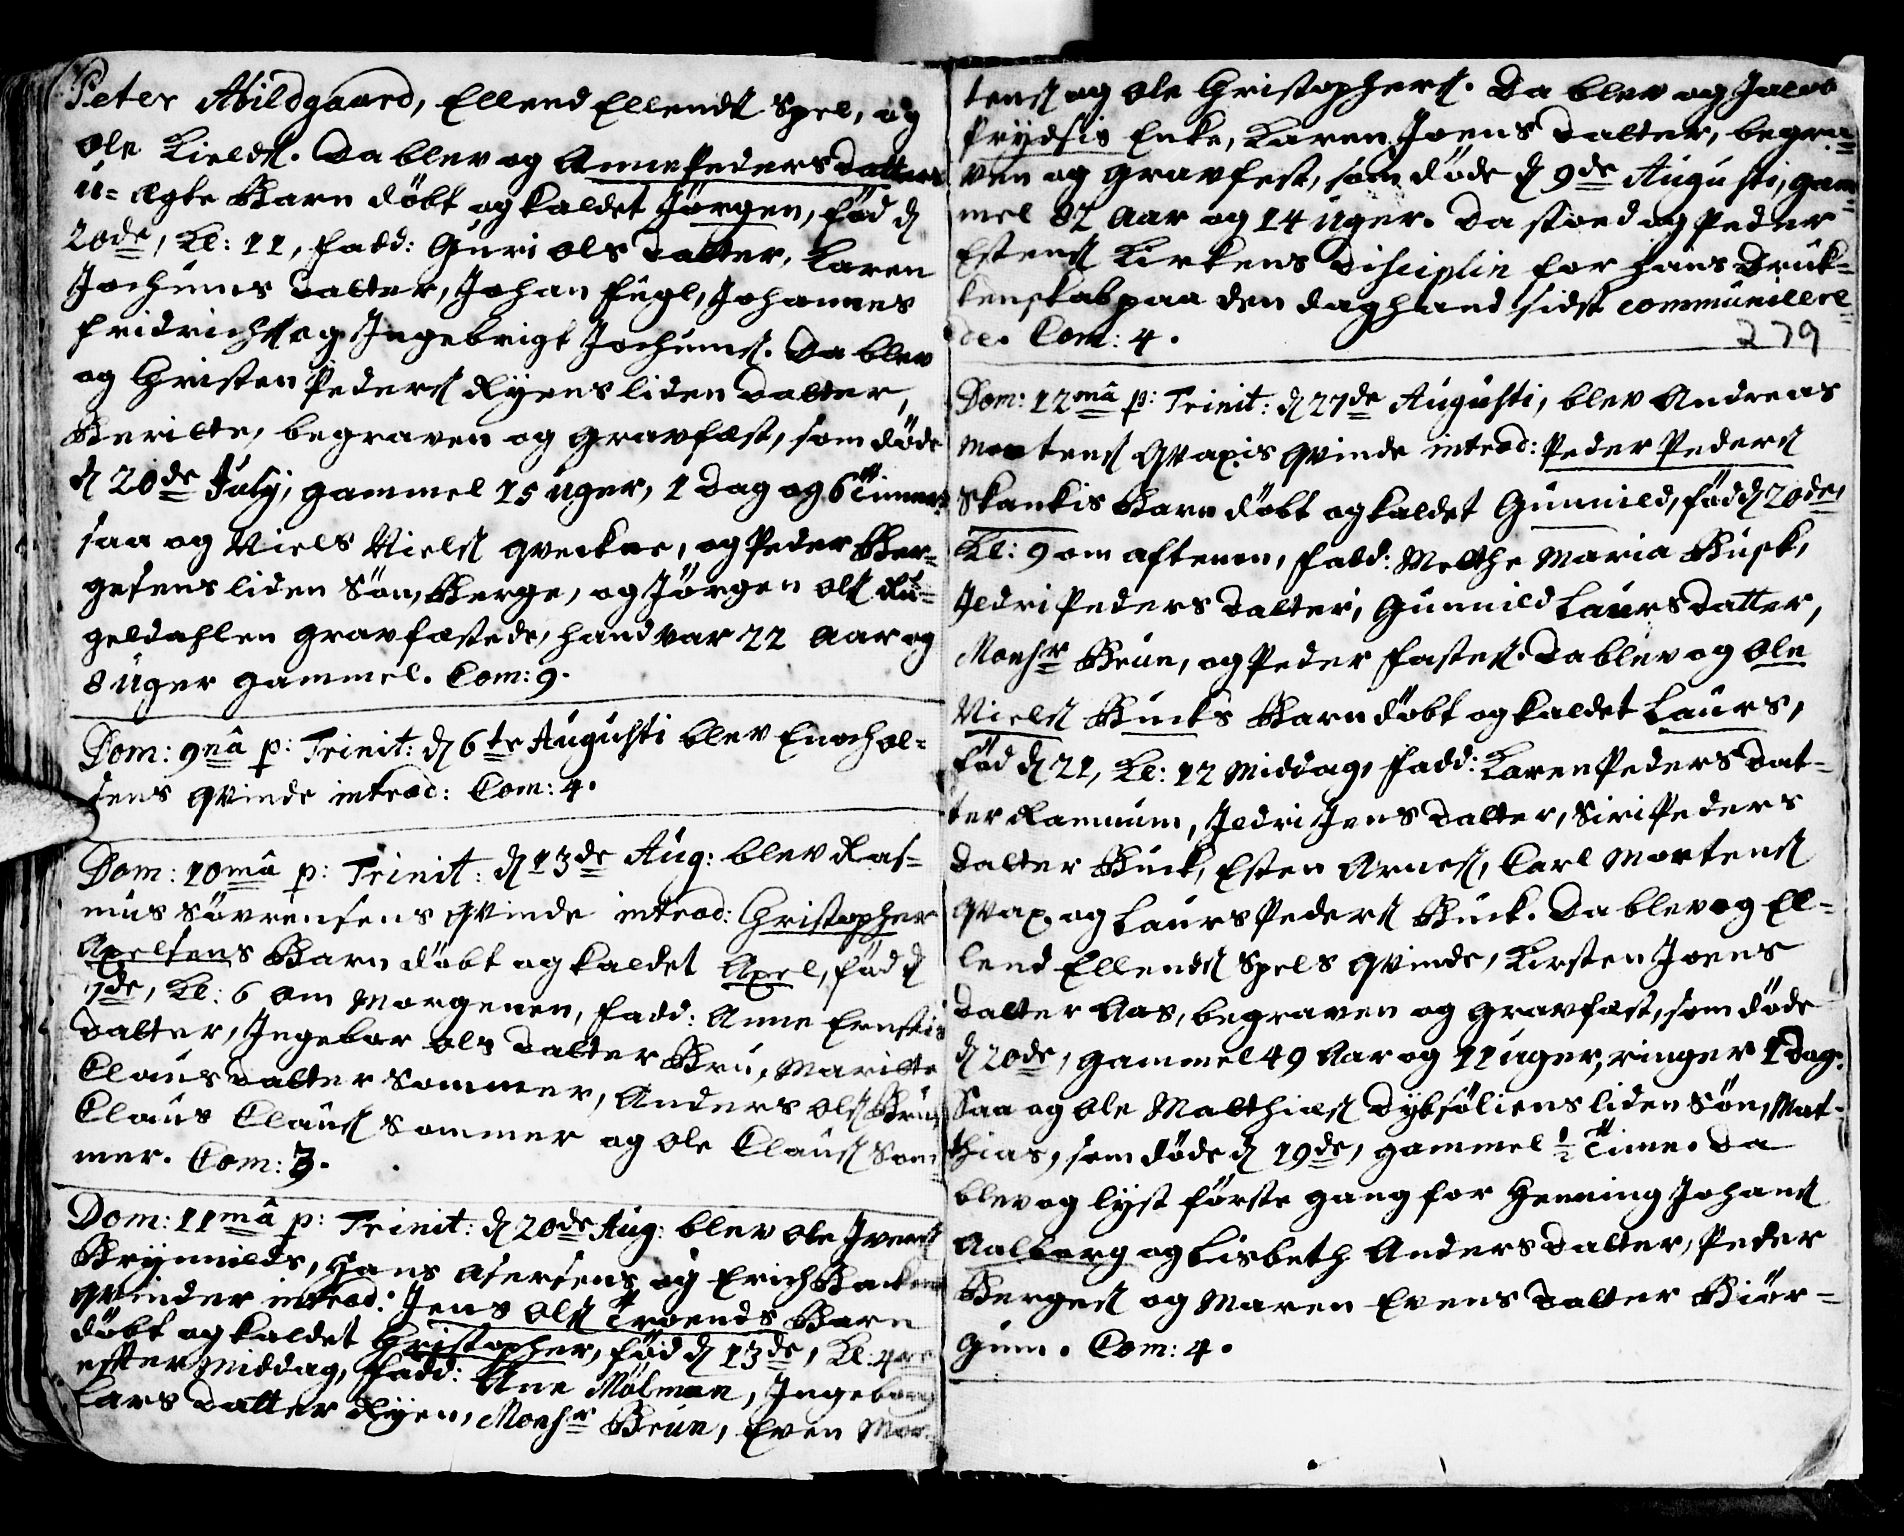 Peter Abildgaard, Ellend Ellends: Spel, og
Ole Kields: Da blev og Anne Peders datters
u-ægte Barn döbt og kaldet Jörgen, föd d
20de, Kl: 11, fadd: Guri Ols datter, Karen
Jochums datter, Johan fugl, Johannes
fridrichs: og Ingebrigt Jochums: Da blev
og Christen Peders: Ryens liden datter,
Beritte, begraven og gravfæst, som döde
d 20de July, gammel 15 uger, 1 dag og 6 Timer
saa og Niels Niels: qveckne, og Peder Ber-
gesens liden Sön, Berge, og Jörgen Ols: Ru-
geldahlen gravfæstede, hand var 22 Aar og
8 uger gammel. Com: 9.
Dom: 9nâ p: Trinit: d 6te Augusti blev Enoch Ol-
sens qvinde introd: Com: 4.
Dom: 10mâ p: Trinit: d 13de Aug: blev Ras-
mus Sövrensens qvinde introd: Christopher
Axelsens Barn döbt og kaldet Axel, föd d
7de, Kl: 6 om Morgenen, fadd: Anne Ernstis
datter, Ingebor Ols datter Bru, Maritte
Claus datter Sommer, Anders Ols: Bru,
Claus Claus: Sommer og Ole Claus: Som-
mer. Com: 3.
Dom: 11mâ p: Trinit: d 20de Aug: blev Ole Ivers:
Brynnilds, Hans Asersens og Erich Backens
qvinder introd: Jens Ols: Troends Barn
döbt og kaldet Christopher, föd d 13de, Kl: 4re
effter Middag, fadd: Ane Mölman, Ingeborg
Lars datter Ryen, Monsr Brun, Even Mor-
tens: og Ole Christophers: Da blev og Jacob
Prydsis Enke, Karen Joens datter, begra-
ven og gravfest, som döde d 9de Augusti, gam-
mel 82 Aar og 14 uger. Da stoed og Peder
Estens: Kirkens Disciplin for hans Druk-
kenskab paa den dag hand sidst communicere-
de. Com: 4.
279
Dom: 12mâ p: Trinit: d 27de Augusti, blev Andreas
Mortens: Qvaxis qvinde introd: Peder Peders:
Skankis Barn döbt og kaldet Gunnild, föd d 20de,
Kl: 9 om aftenen, fadd: Metthe Maria Busk,
Ildri Peders datter, Gunnild Laurs datter,
Monsr Brun, og Peder fastes: Da blev og Ole
Niels: Bucks Barn döbt og kaldet Laurs,
föd d 21, Kl: 12 Middag, fadd: Karen Peders dat-
ter Ramnum, Ildri Jens datter, Siri Peders
datter Buck, Esten Arnes:, Carl Mortens:
Qvax. og Laurs Peders: Buck. Da blev og El-
lend Ellends: Spels qvinde, Kirsten Joens
datter Aas, begraven og gravfæst, som döde
d 20de, gammel 49 Aar og 11 uger, ringer 1 dag.
Saa og Ole Matthias: Dybsöliens liden Sön, Mat-
thias, som döde d 19de, gammel ½ Time. Da
blev og lyst förste gang for Henning Johans:
Aalborg og Lisbeth Anders datter, Peder
Berges: og Maren Evens datter Biör-
gum. Com: 4.